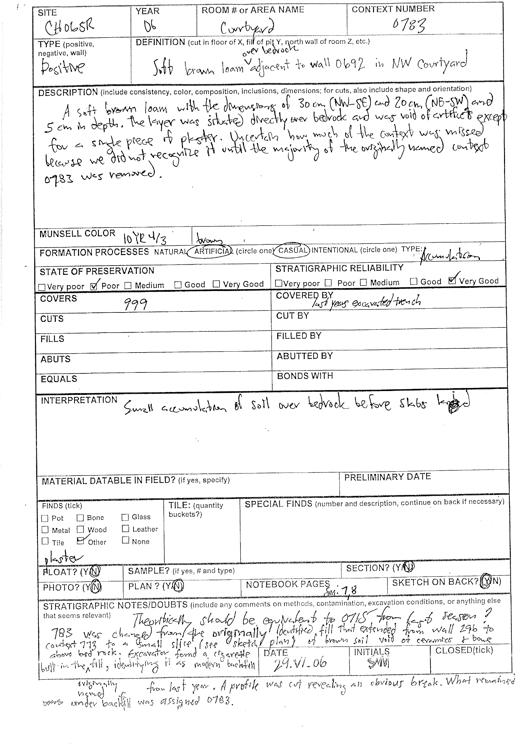 SITE YEAR ROOM # or AREA NAME CONTEXT NUMBER
CH06SR 06 Courtyard 0783
TYPE (positive, negative, wall) DEFINITION (cut in floor of X, fill of pit Y, north wall of room Z, etc.)
Positive Soft brown loam over bedrock adjacent to wall 0692 in NW Courtyard
DESCRIPTION (include consistency, color, composition, inclusions, dimensions; for cuts, also include shape and orientation)
A soft brown loam with the dimensions of 30 cm (NW-SE) and 20 cm (NE-SW) and
5 cm in depth. The layer was situated directly over bedrock and was void of artifacts except
for a single piece of plaster. Uncertain how much of the context was missed
because we did not recognize it until the majority of the originally named context
0783 was removed.
MUNSELL COLOR 10YR 4/3 brown
FORMATION PROCESSES NATURAL ARTIFICIAL (circle one) CASUAL INTENTIONAL (circle one) TYPE: Accumulation
STATE OF PRESERVATION STRATIGRAPHIC RELIABILITY
Very poor Poor Medium Good Very Good Very poor Poor Medium Good Very Good
COVERS 999 COVERED BY last years excavated trench
CUTS CUT BY
FILLS FILLED BY
ABUTS ABUTTED BY
EQUALS BONDS WITH
INTERPRETATION Small accumulation of soil over bedrock before slabs
MATERIAL DATABLE IN FIELD? (if yes, specify) PRELIMINARY DATE
FINDS (tick) TILE: (quantity buckets?) SPECIAL FINDS (number and description, continue on back if necessary)
Pot Bone Glass
Metal Wood Leather
Tile Other None
plaster
FLOAT? (Y/N) SAMPLE? (if yes, # and type) SECTION? (Y/N)
PHOTO? (Y/N) PLAN? (Y/N) NOTEBOOK PAGES 7,8 SKETCH ON BACK? (Y/N)
STRATIGRAPHIC NOTES/DOUBTS (include any comments on methods, contamination, excavation conditions, or anything else
that seems relevant) Theoretically should be equivalent to 0715 from last season?
783 was changed from the originally identified fill that extended from wall 296 to
context 773 to a small slice (see sketch plan) of brown soil void of ceramics + bone
above bedrock. Excavator found a cigarette
butt in the fill, identifying it as modern backfill
DATE 29.VI.06 INITIALS CLOSED(tick)
originally from last year. A profile was cut revealing an obvious break. What remained
under backfill was assigned 0783.